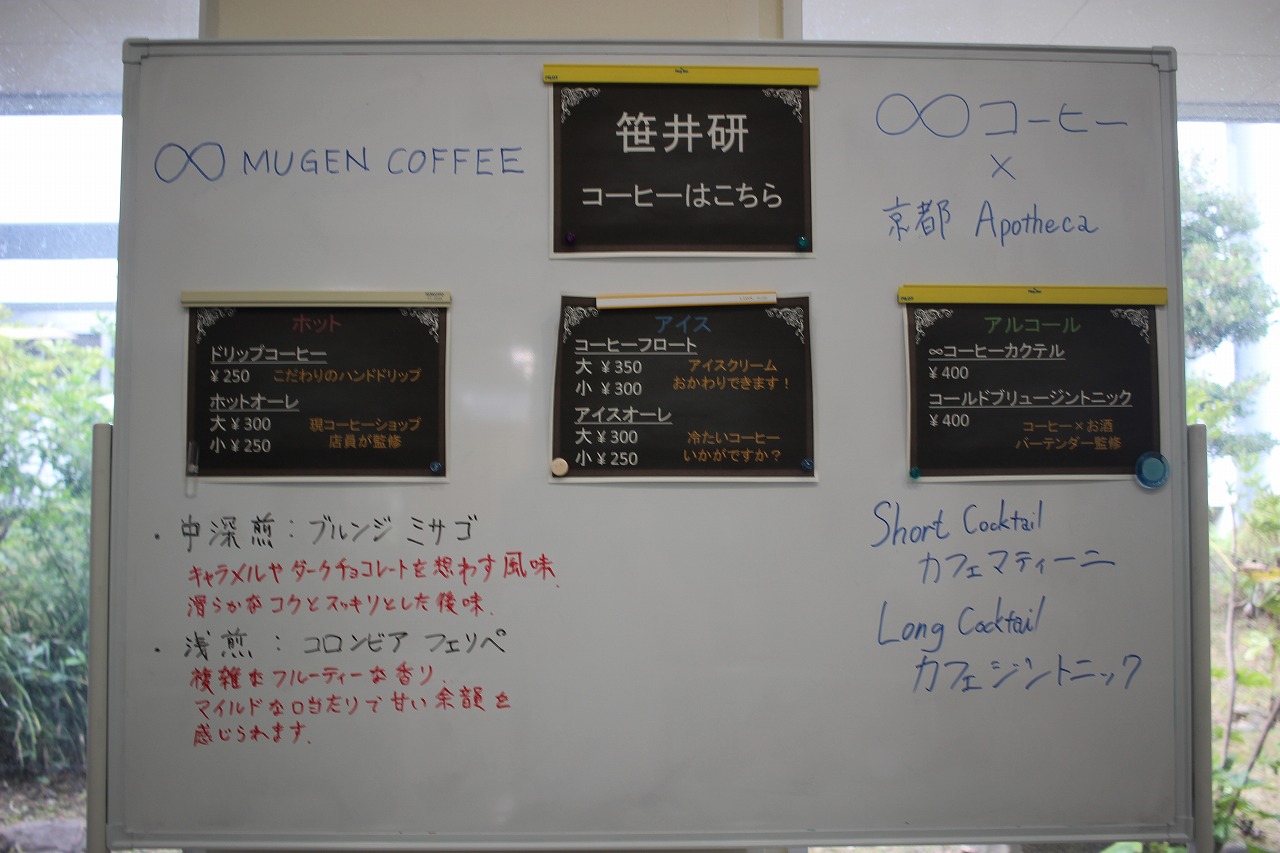 ∞ MUGEN COFFEE
笹井研
コーヒーはこちら
∞コーヒー
×
京都 Apotheca
ホット
ドリップコーヒー
¥250 こだわりのハンドドリップ
ホットオーレ
大 ¥300 現コーヒーショップ
小 ¥250 店員が監修
アイス
コーヒーフロート
大 ¥350 アイスクリーム
小 ¥300 おかわりできます！
アイスオーレ
大 ¥300 冷たいコーヒー
小 ¥250 いかがですか？
アルコール
∞コーヒーカクテル
¥400
コールドブリュージントニック
¥400 コーヒー×お酒
バーテンダー監修
・中深煎：ブルンジ ミサゴ
キャラメルやダークチョコレートを想わす風味.
滑らかなコクとスッキリとした後味.
・浅煎：コロンビア フェリペ
複雑なフルーティーな香り.
マイルドな口当たりで甘い余韻を
感じられます.
Short Cocktail
カフェマティーニ
Long Cocktail
カフェジントニック